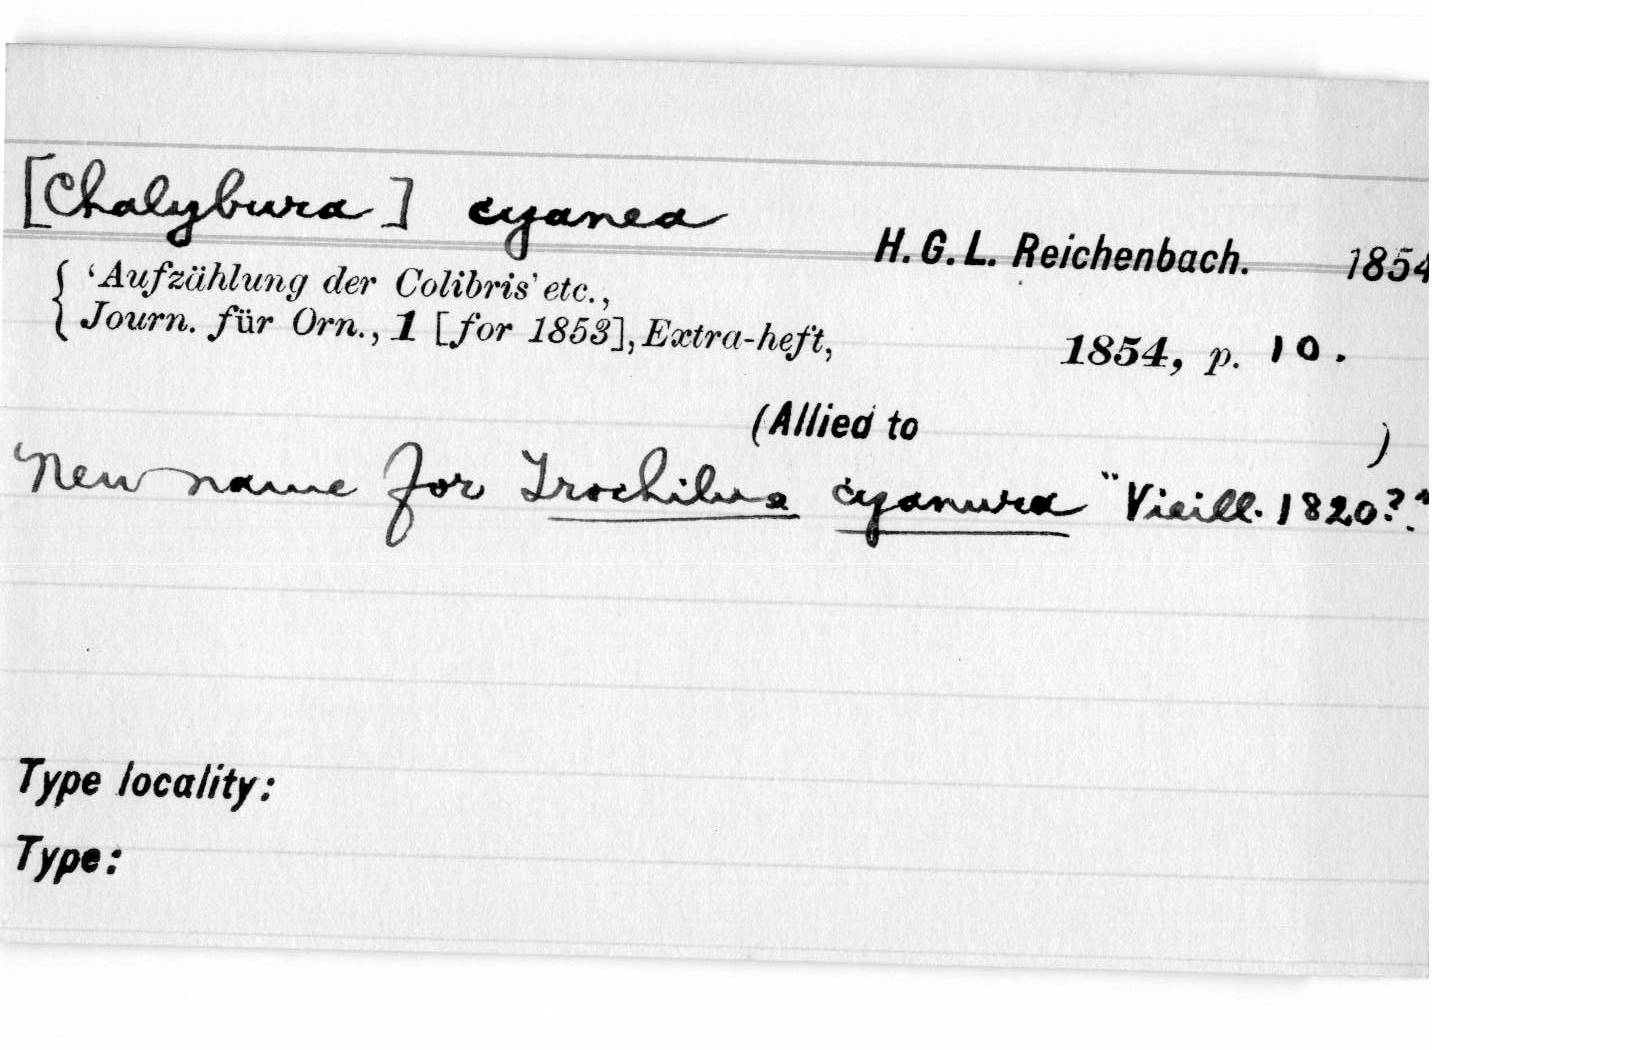 [Chalybura] cyanea
H. G. L. Reichenbach. 1854
{ 'Aufzählung der Colibris' etc.,
{ Journ. für Orn., 1 [for 1853], Extra-heft, 1854, p. 10.
(Allied to )
New name for Trochilus cyanura "Vieill. 1820?."
Type locality:
Type: